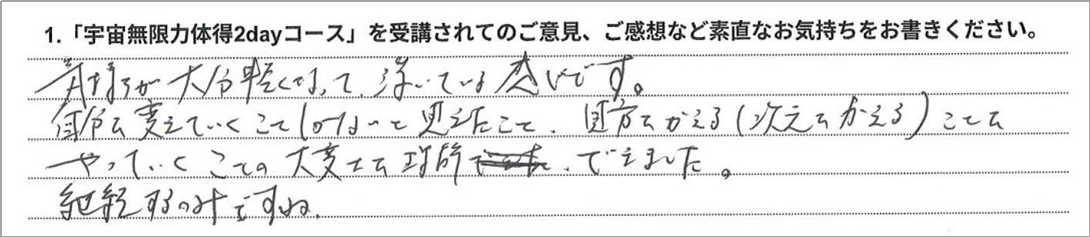 1.「宇宙無限力体得2dayコース」を受講されてのご意見、ご感想など素直なお気持ちをお書きください。
気持ちが大分軽くなって、浮いている感じです。
自分を変えていくことしかないと思えたこと、見方をかえる(次元をかえる)ことを
やっていくことの大変さを理解 できました。
継続するのみですね。